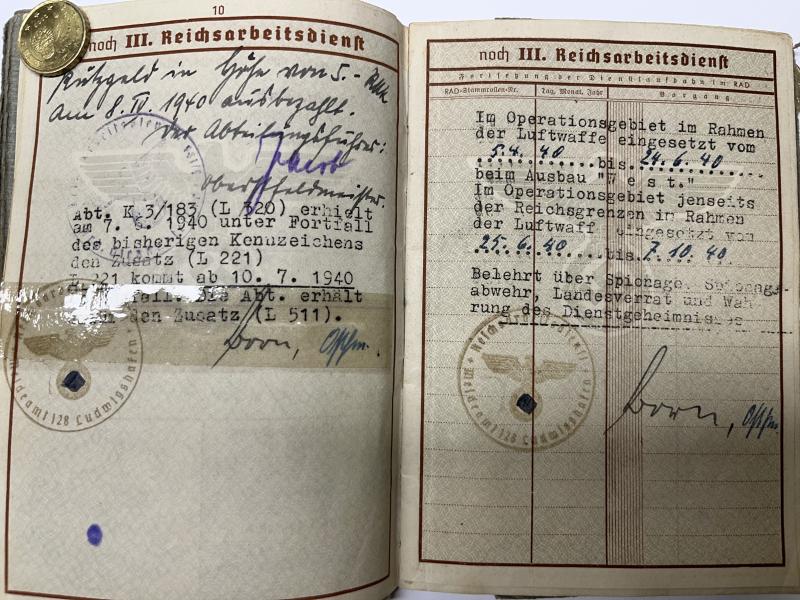 10
noch III. Reichsarbeitsdienst
Putzgeld in Höhe von 5.- RM
am 8. IV. 1940 ausbezahlt.
Der Abteilungsführer:
Oberstfeldmeister.
Abt. K 3/183 (L 320) erhielt
am 7. 6. 1940 unter Fortfall
des bisherigen Kennzeichens
den Zusatz (L 221)
L 221 kommt ab 10. 7. 1940
Abt. erhält
den Zusatz (L 511).
Born, Ofm.
Meldeamt 128 Ludwigshafen
noch III. Reichsarbeitsdienst
Fortsetzung der Dienstlaufbahn im RAD
RAD-Stammrollen-Nr. Tag, Monat, Jahr Vorgang
Im Operationsgebiet im Rahmen
der Luftwaffe eingesetzt vom
5.4. 40 bis 24.6. 40
beim Ausbau "West."
Im Operationsgebiet jenseits
der Reichsgrenzen im Rahmen
der Luftwaffe eingesetzt vom
25.6.40 bis 7.10.40
Belehrt über Spionage, Spionage-
abwehr, Landesverrat und Wah-
rung des Dienstgeheimnisses
Reichsarbeitsdienst
Meldeamt 128 Ludwigshafen
Born, Ofm.